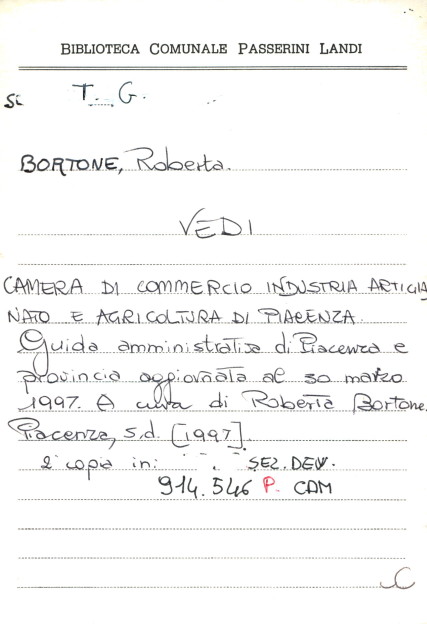 BIBLIOTECA COMUNALE PASSERINI LANDI
Si T. G.
BORTONE, Roberta.
VEDI
CAMERA DI COMMERCIO INDUSTRIA ARTIGIA
NATO E AGRICOLTURA DI PIACENZA.
Guida amministrativa di Piacenza e
provincia aggiornata al 30 marzo
1997. A cura di Roberta Bortone.
Piacenza, s.d. [1997].
2ª copia in: SEZ. DEW.
914.546 P. CAM